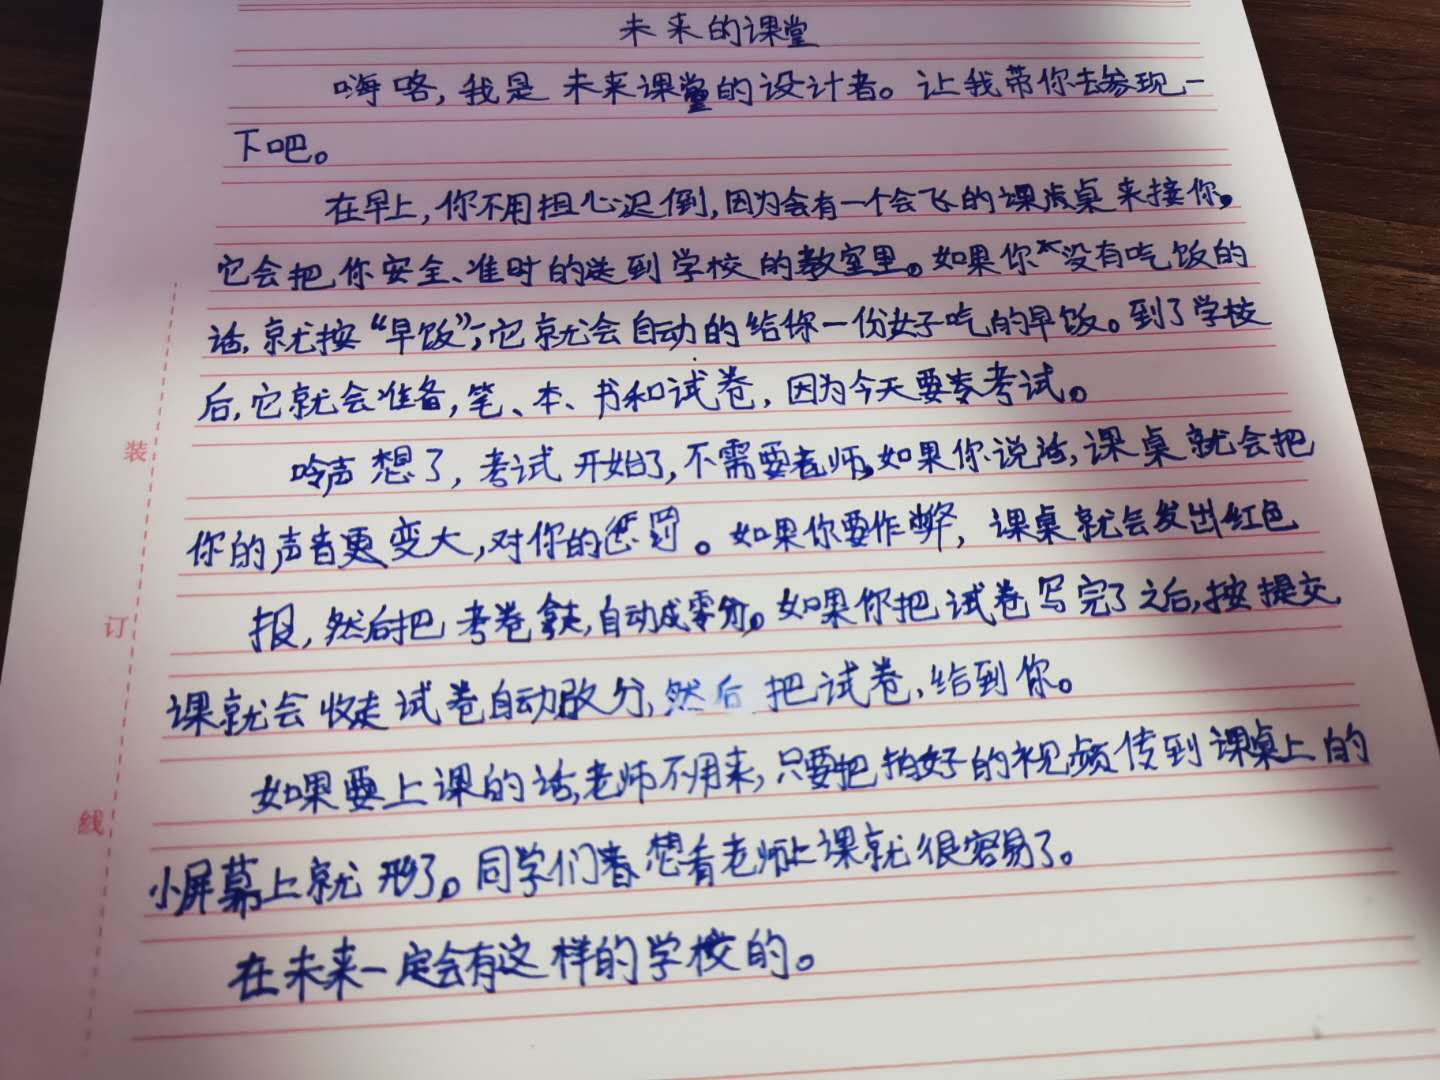 未来的课堂
嗨咯,我是未来课堂的设计者。让我带你去参现一
下吧。
在早上,你不用担心迟倒,因为会有一个会飞的课桌来接你。
它会把你安全、准时的送到学校的教室里。如果你没有吃饭的
话,就按“早饭”,它就会自动的给你一份好吃的早饭。到了学校
后,它就会准备,笔、本、书和试卷,因为今天要考试。
呤声想了,考试开始了,不需要老师,如果你说话,课桌就会把
你的声音更变大,对你的惩罚。如果你要作弊,课桌就会发出红色
报,然后把考卷拿走,自动成零分。如果你把试卷写完了之后,按提交
课就会收走试卷自动改分,然后把试卷,给到你。
如果要上课的话,老师不用来,只要把拍好的视频传到课桌上的
小屏幕上就形了。同学们想看老师上课就很容易了。
在未来一定会有这样的学校的。
装
订
线